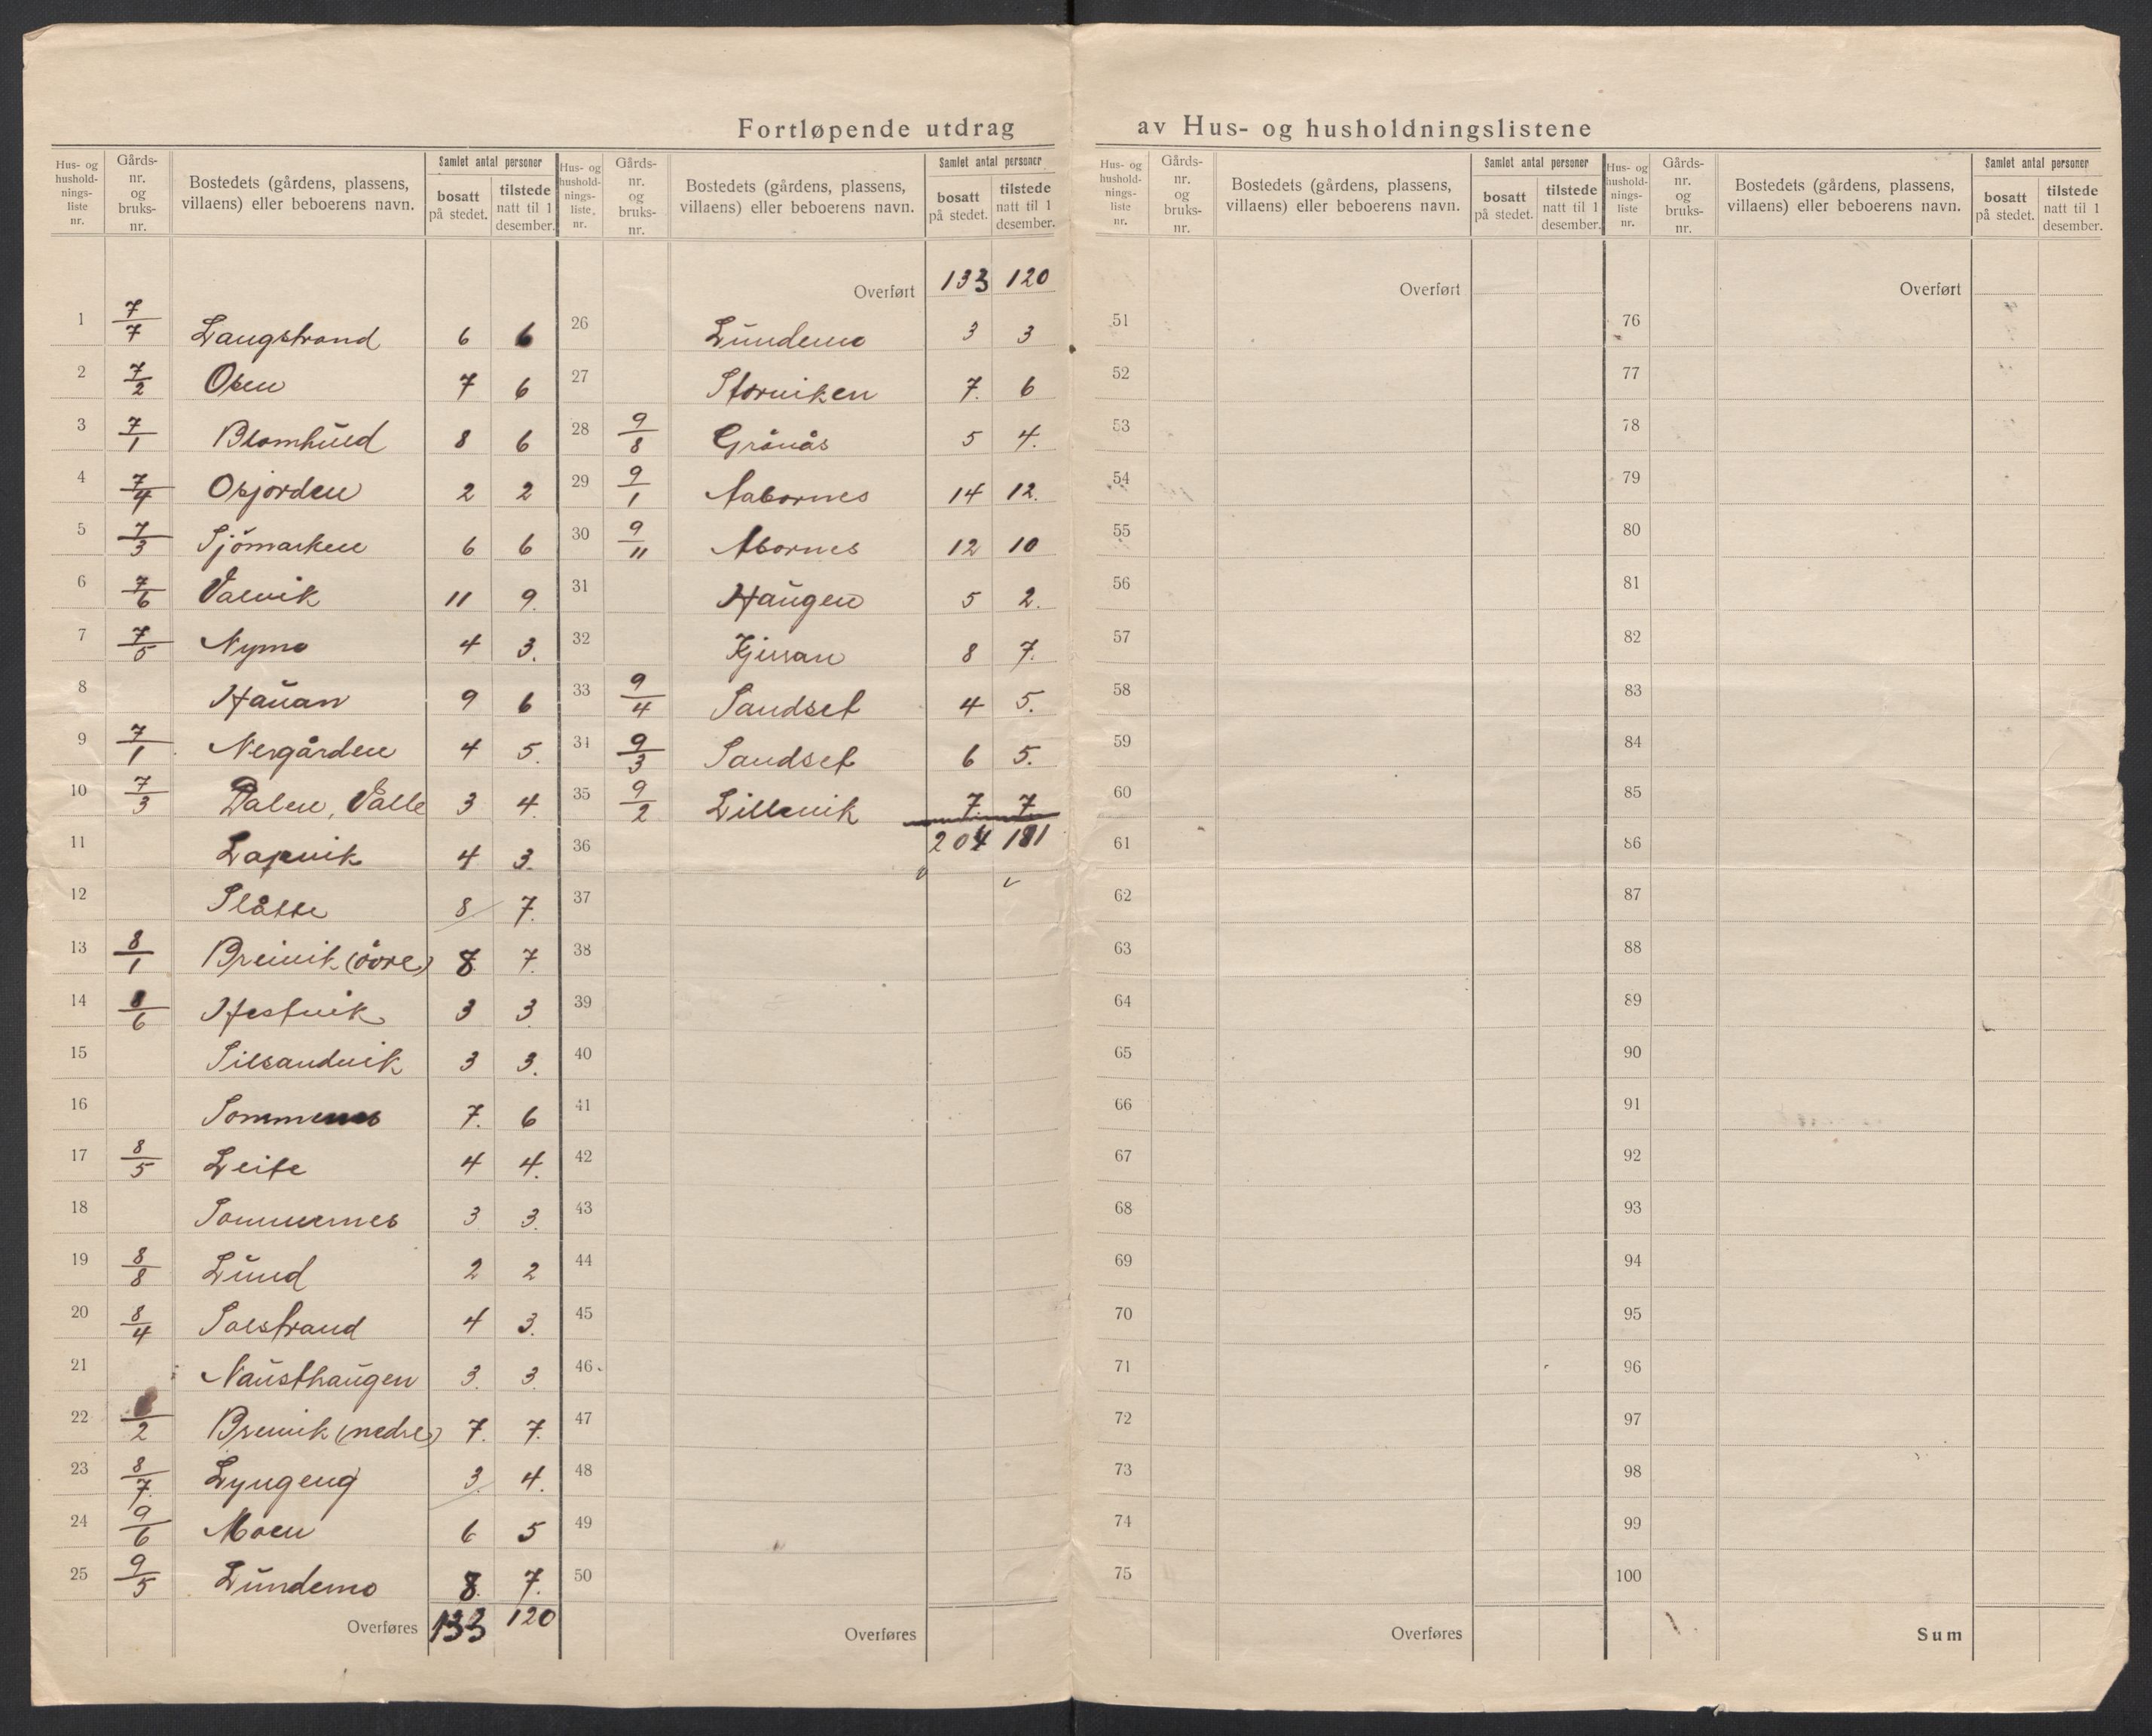 Fortløpende utdrag av Hus- og husholdningslistene
Hus- og hushold-nings-liste nr. | Gårds-nr. og bruks-nr. | Bostedets (gårdens, plassens, villaens) eller beboerens navn. | Samlet antal personer | bosatt på stedet. | tilstede natt til 1 desember.
1 7/7 Langstrand 6 6
2 7/2 Osen 7 6
3 7/1 Blomhuld 8 6
4 7/4 Osjorden 2 2
5 7/3 Sjömarken 6 6
6 7/6 Valvik 11 9.
7 7/5 Nymo 4 3.
8 Hauan 9 6
9 7/1 Nergården 4 5.
10 7/3 Dalen, Valle 3 4.
11 4 3.
12 Slåtte 8 7.
13 8/1 Breivik (övre) 8 7.
14 8/6 Hestvik 3 3
15 Silsandvik 3 3.
16 Sommernes 7. 6
17 8/5 Leite 4 4.
18 Sommernes 3 3.
19 8/8 Lund 2 2
20 8/4 Solstrand 4 3.
21 Nausthaugen 3. 3.
22 /2 Breivik (nedre) 7. 7.
23 8/7. Lyngeng 3. 4.
24 9/6 Moen 6 5
25 9/5 Lundemo 8. 7.
Overføres 133 120
Hus- og hushold-nings-liste, nr. | Gårds-nr. og bruks-nr. | Bostedets (gårdens, plassens, villaens) eller beboerens navn. | Samlet antal personer | bosatt på stedet. | tilstede natt til 1 desember.
Overført 133 120
26 Lundemo 3 3
27 Storviken 7. 6
28 9/8 Grånås 5 4.
29 9/1 Aabornes 14 12.
30 9/11 Abornes 12 10
31 Haugen 5 2.
32 8 7.
33 9/4 Sandset 4 5.
34 9/3 Sandset 6 5.
35 9/2 Lillevik 7. 7.
36 204 181
37
38
39
40
41
42
43
44
45
46
47
48
49
50
Overføres
Hus- og hushold-nings-liste nr. | Gårds-nr. og bruks-nr. | Bostedets (gårdens, plassens, villaens) eller beboerens navn. | Samlet antal personer | bosatt på stedet. | tilstede natt til 1 desember.
Overført
51
52
53
54
55
56
57
58
59
60
61
62
63
64
65
66
67
68
69
70
71
72
73
74
75
Overføres
Hus- og hushold-nings-liste nr. | Gårds-nr. og bruks-nr. | Bostedets (gårdens, plassens, villaens) eller beboerens navn. | Samlet antal personer | bosatt på stedet. | tilstede natt til 1 desember.
Overført
76
77
78
79
80
81
82
83
84
85
86
87
88
89
90
91
92
93
94
95
96
97
98
99
100
Sum